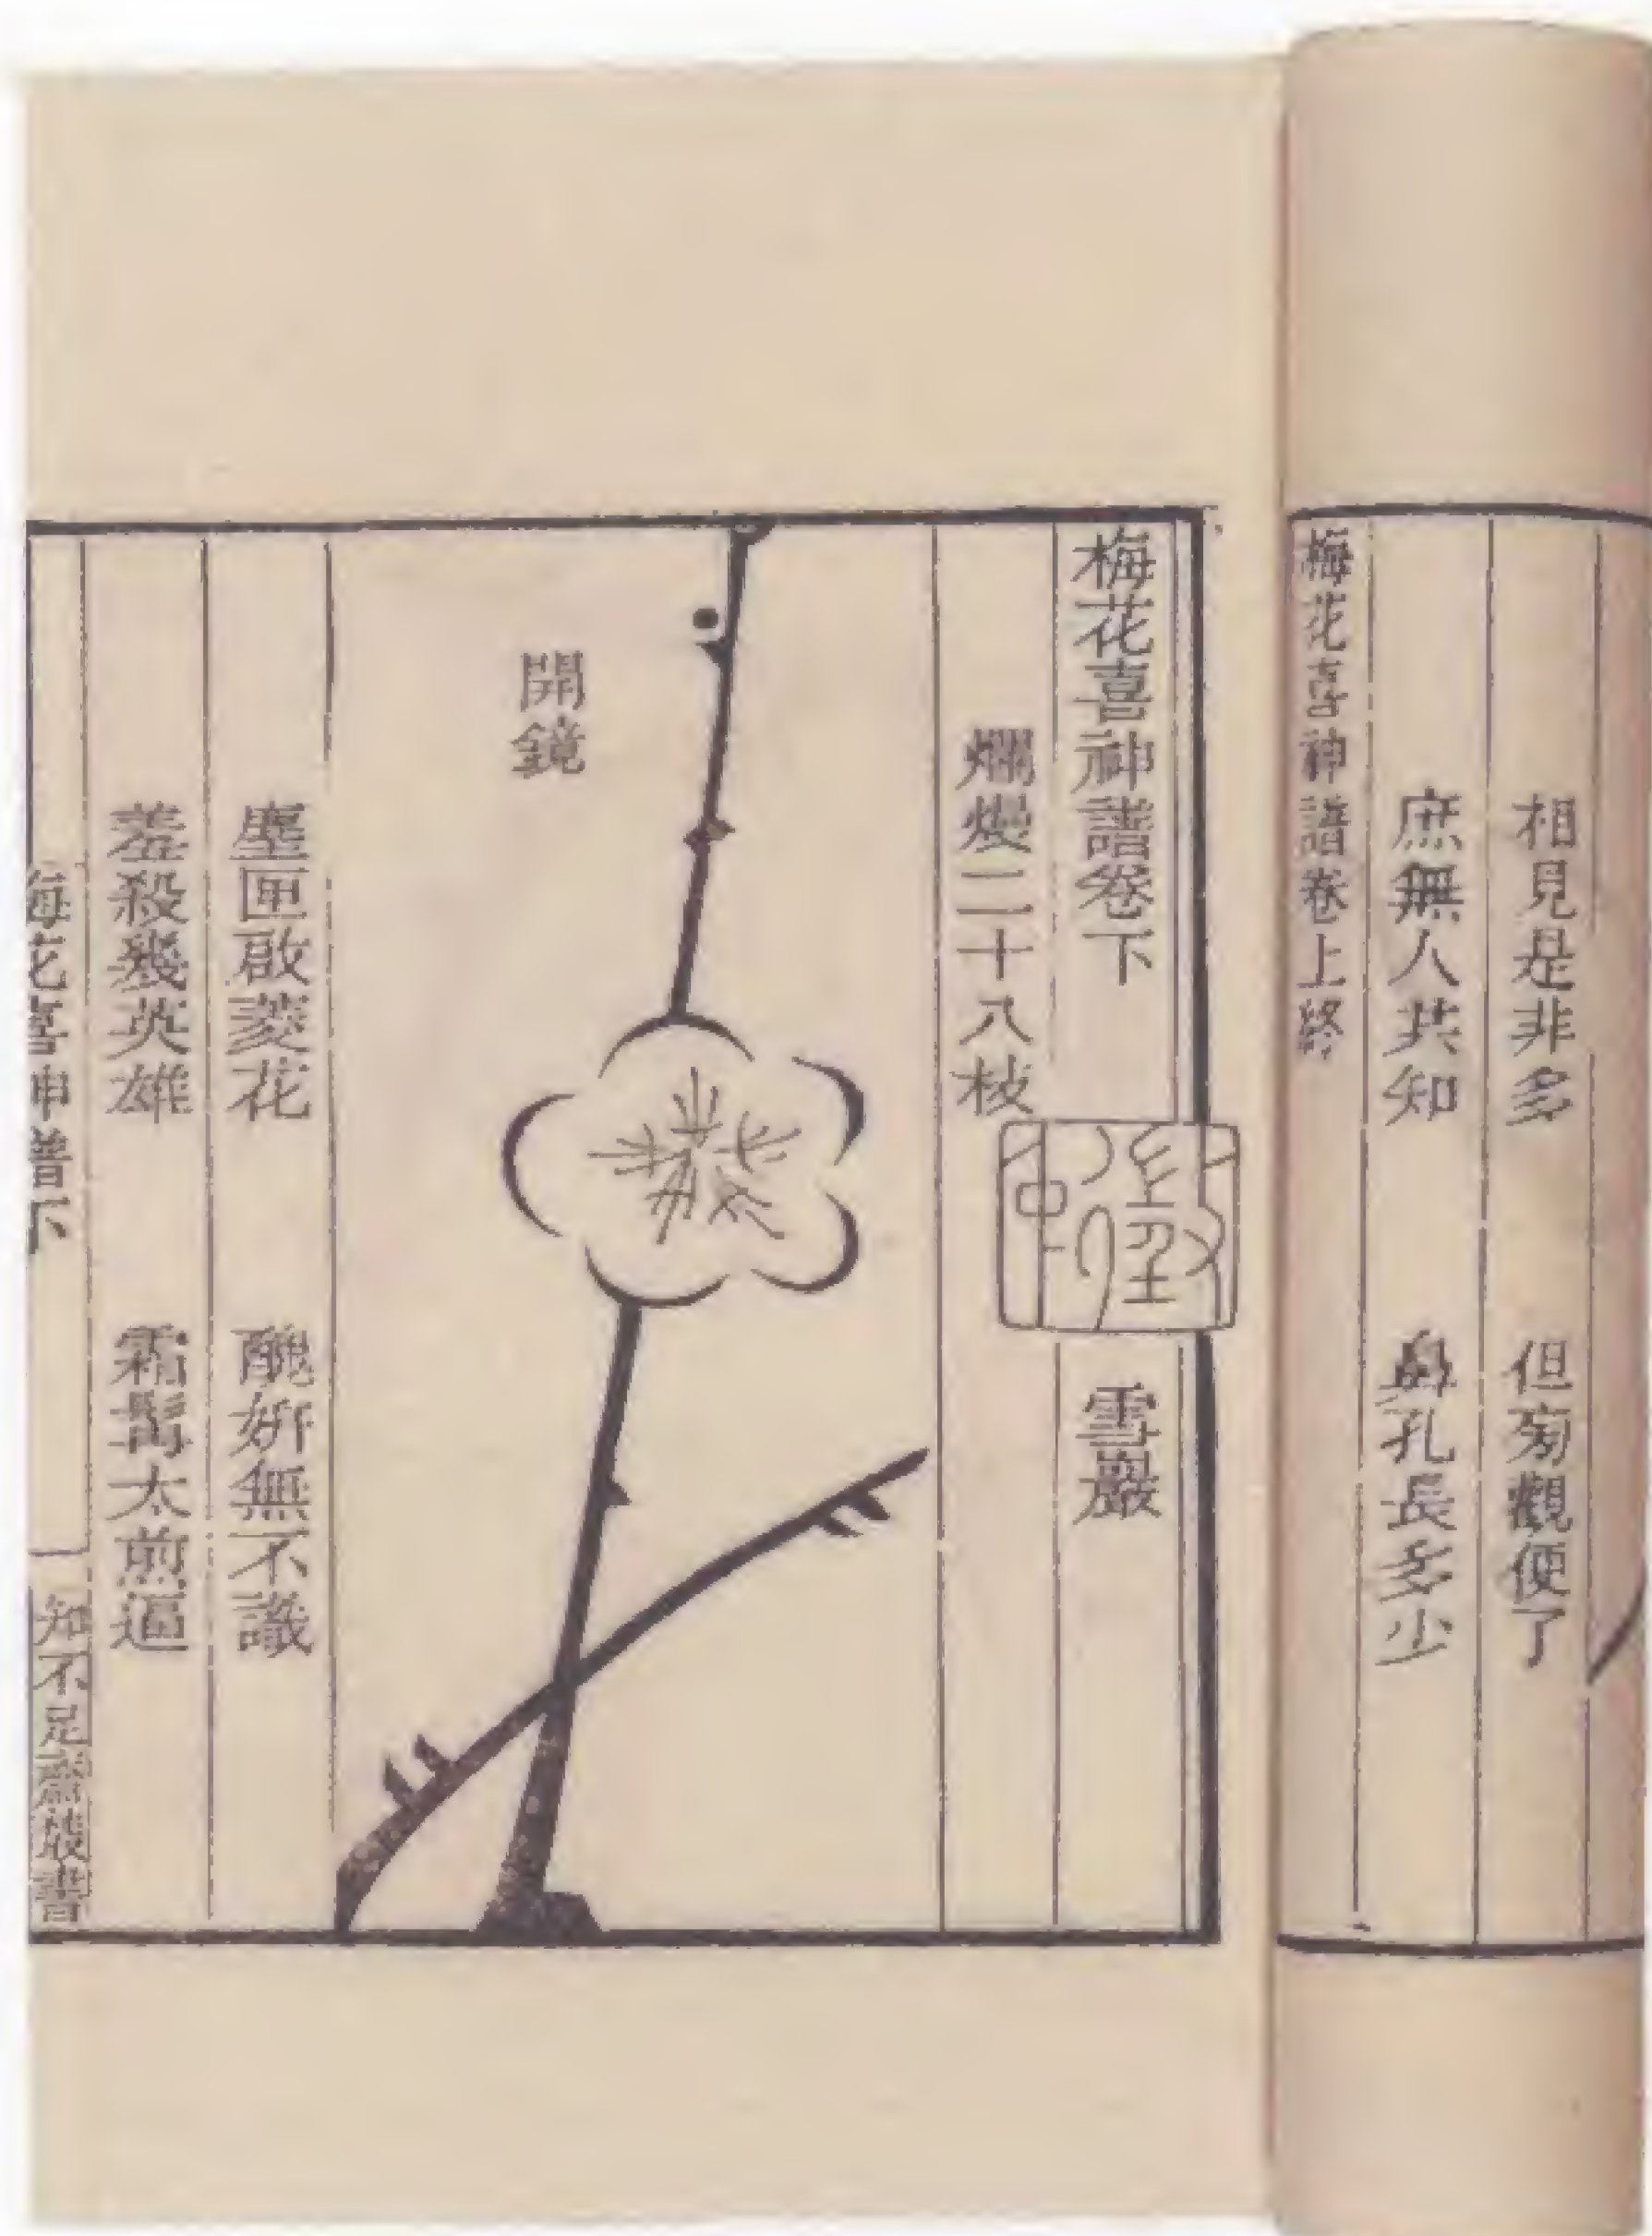 相見是非多 但旁觀便了
庶無人共知 鼻孔長多少
梅花喜神譜卷上終
梅花喜神譜卷下 雪巖
爛熳二十八枝
開鏡
塵匣啟菱花 醜妍無不識
羞殺幾英雄 霜太煎逼
梅花喜神譜下 知不足齋叢書